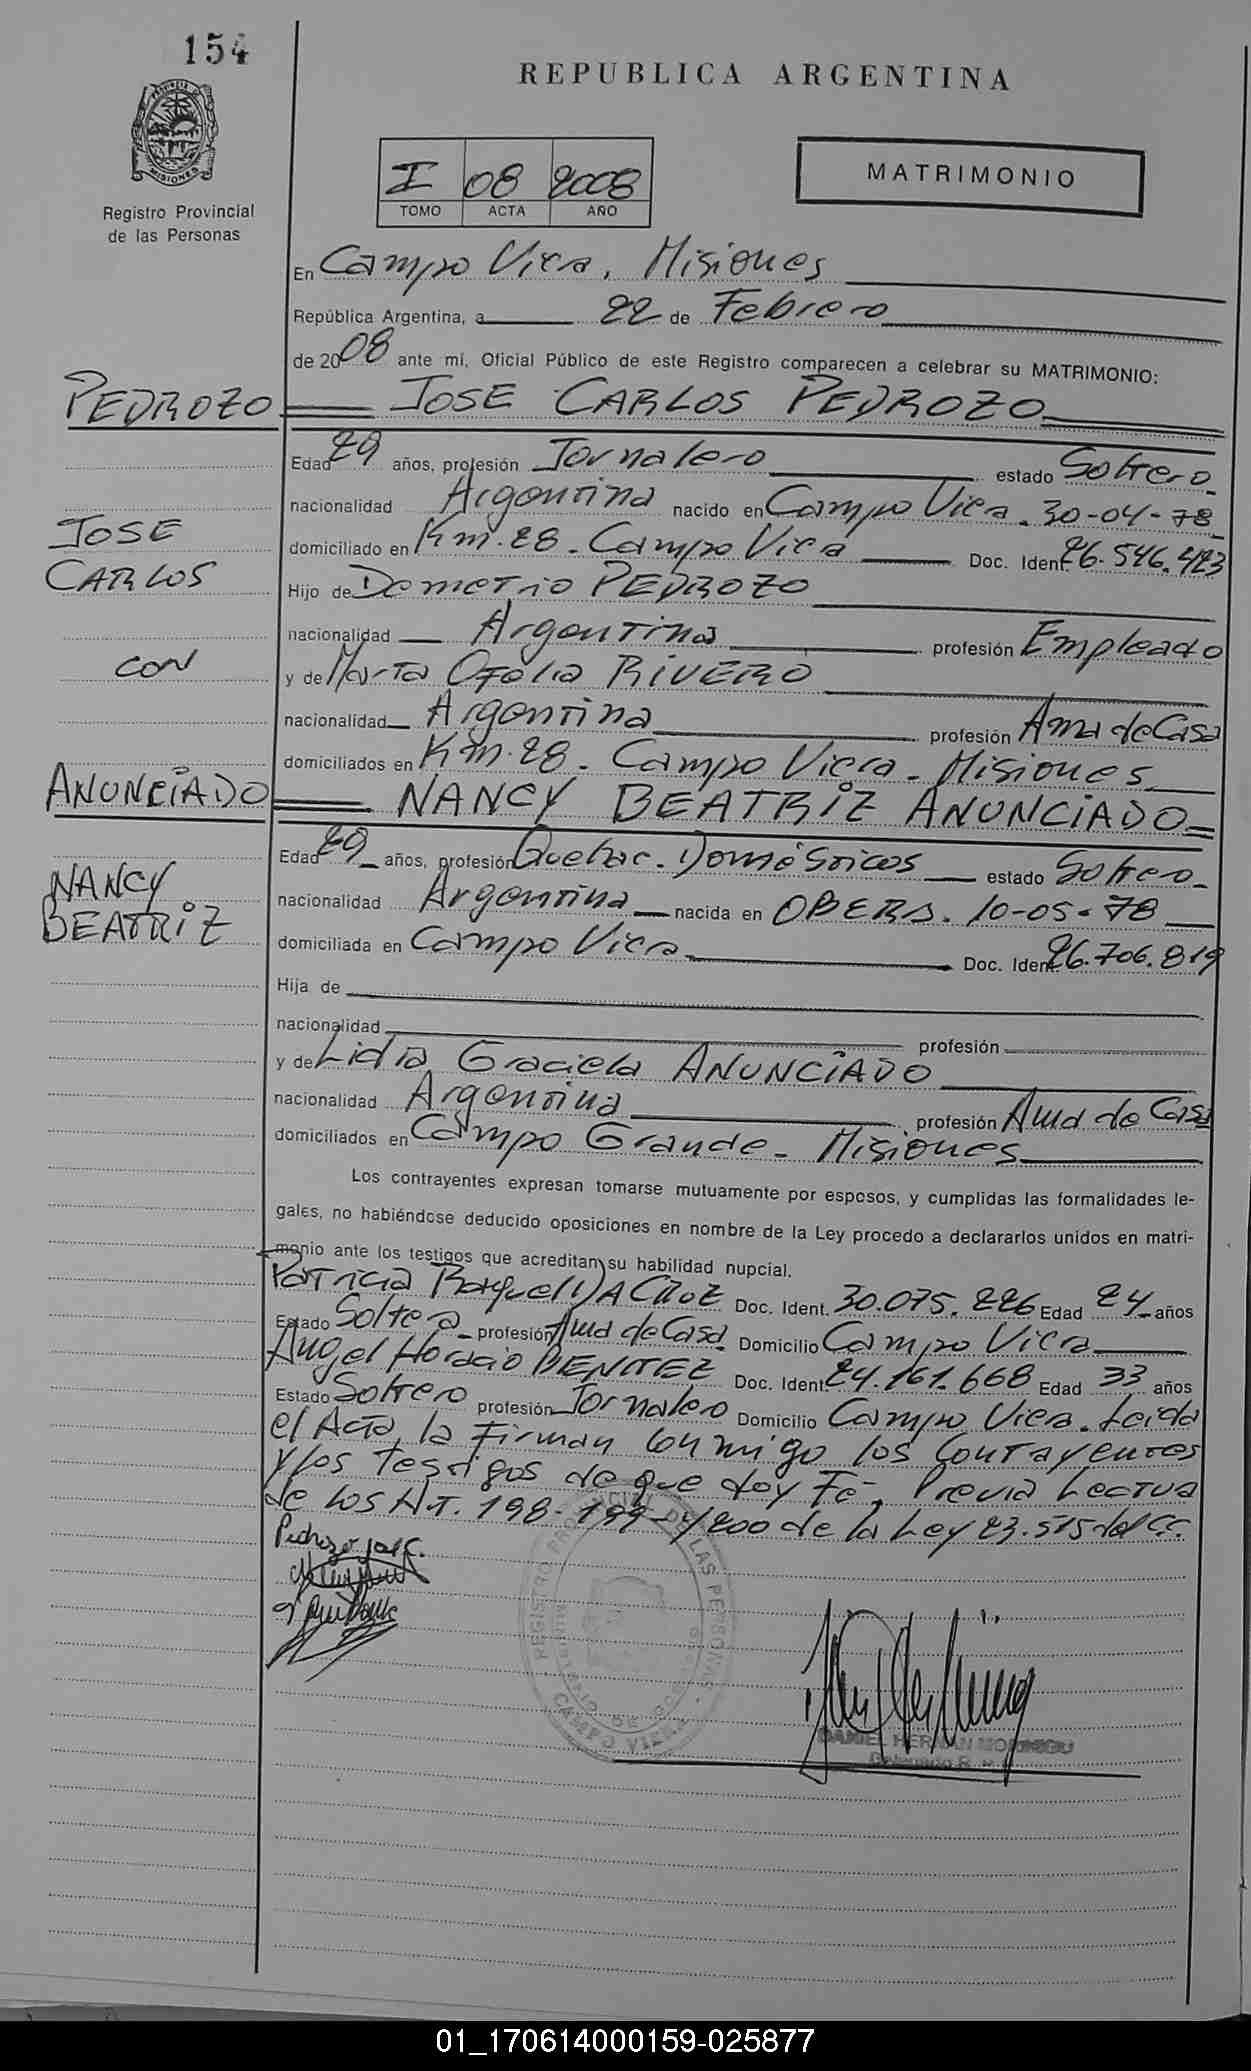 154
REPUBLICA ARGENTINA
PROVINCIA DE MISIONES
Registro Provincial
de las Personas
I 08 2008
TOMO ACTA AÑO
MATRIMONIO
En Campo Viera, Misiones
República Argentina, a 22 de Febrero
de 2008 ante mí, Oficial Público de este Registro comparecen a celebrar su MATRIMONIO:
PEDROZO JOSE CARLOS PEDROZO
Edad 29 años, profesión Jornalero estado Soltero
nacionalidad Argentina nacido en Campo Viera. 30-04-78
JOSE
domiciliado en Km. 28. Campo Viera Doc. Ident. 26.546.423
CARLOS
Hijo de Demetrio PEDROZO
nacionalidad Argentina profesión Empleado
con
y de Marta Ofelia RIVERO
nacionalidad Argentina profesión Ama de Casa
domiciliados en Km. 28. Campo Viera. Misiones
ANUNCIADO NANCY BEATRIZ ANUNCIADO
Edad 29 años, profesión Quehac. Domésticos estado Soltero
NANCY
nacionalidad Argentina nacida en OBERA. 10-05-78
BEATRIZ
domiciliada en Campo Viera Doc. Ident. 26.706.819
Hija de
nacionalidad profesión
y de Lidia Graciela ANUNCIADO
nacionalidad Argentina profesión Ama de Casa
domiciliados en Campo Grande. Misiones
Los contrayentes expresan tomarse mutuamente por esposos, y cumplidas las formalidades le-
gales, no habiéndose deducido oposiciones en nombre de la Ley procedo a declararlos unidos en matri-
monio ante los testigos que acreditan su habilidad nupcial.
Patricia Raquel DA CRUZ Doc. Ident. 30.075.226 Edad 24 años
Estado Soltera profesión Ama de Casa Domicilio Campo Viera
Angel Horacio BENITEZ Doc. Ident. 24.161.668 Edad 33 años
Estado Soltero profesión Jornalero Domicilio Campo Viera. Leida
el Acta, la Firman conmigo los Contrayentes
y los Testigos de que doy Fé. Previa Lectura
de los Art. 198-199-y 200 de la Ley 23.515 del C.C.
Pedrozo José C.
REGISTRO PROVINCIAL DE LAS PERSONAS
MINISTERIO DE GOBIERNO
CAMPO VIERA
DANIEL HERNAN MORINIGO
Delegado R. P.
01_170614000159-025877